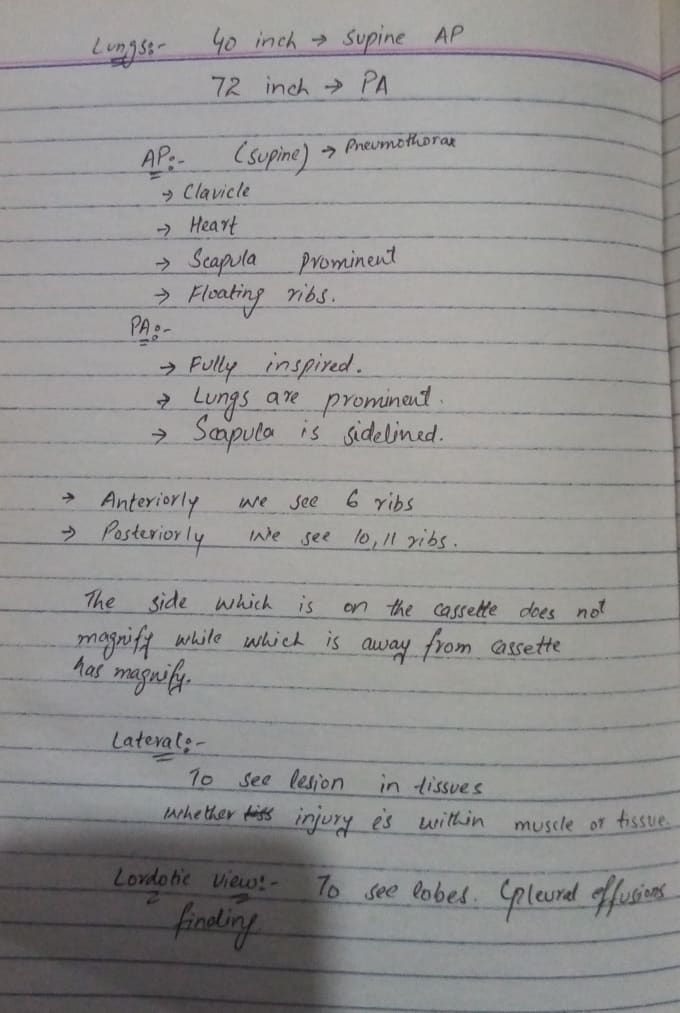 Lungs:- 40 inch → supine AP
72 inch → PA
AP:- (supine) → Pneumothorax
→ Clavicle
→ Heart
→ Scapula prominent
→ Floating ribs.
PA:-
→ Fully inspired.
→ Lungs are prominent.
→ Scapula is sidelined.
→ Anteriorly we see 6 ribs
→ Posteriorly we see 10, 11 ribs.
The side which is on the cassette does not
magnify while which is away from cassette
has magnify.
Lateral:-
To see lesion in tissues
whether tiss injury is within muscle or tissue.
Lordotic view:- To see lobes. (pleural effusions
finding